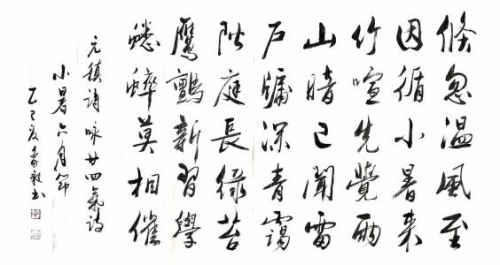 倏忽温風至
因循小暑来
竹喧先覺雨
山暗已聞雷
户牖深青靄
階庭長緑苔
鷹鸇新習學
蟋蟀莫相催
元稹詩咏廿四氣詩
小暑六月節
乙巳夏 書